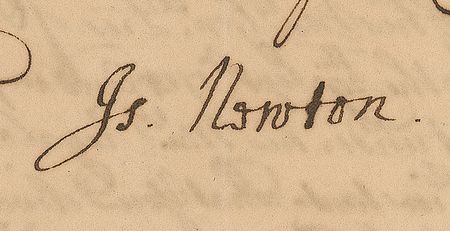 Is. Newton.